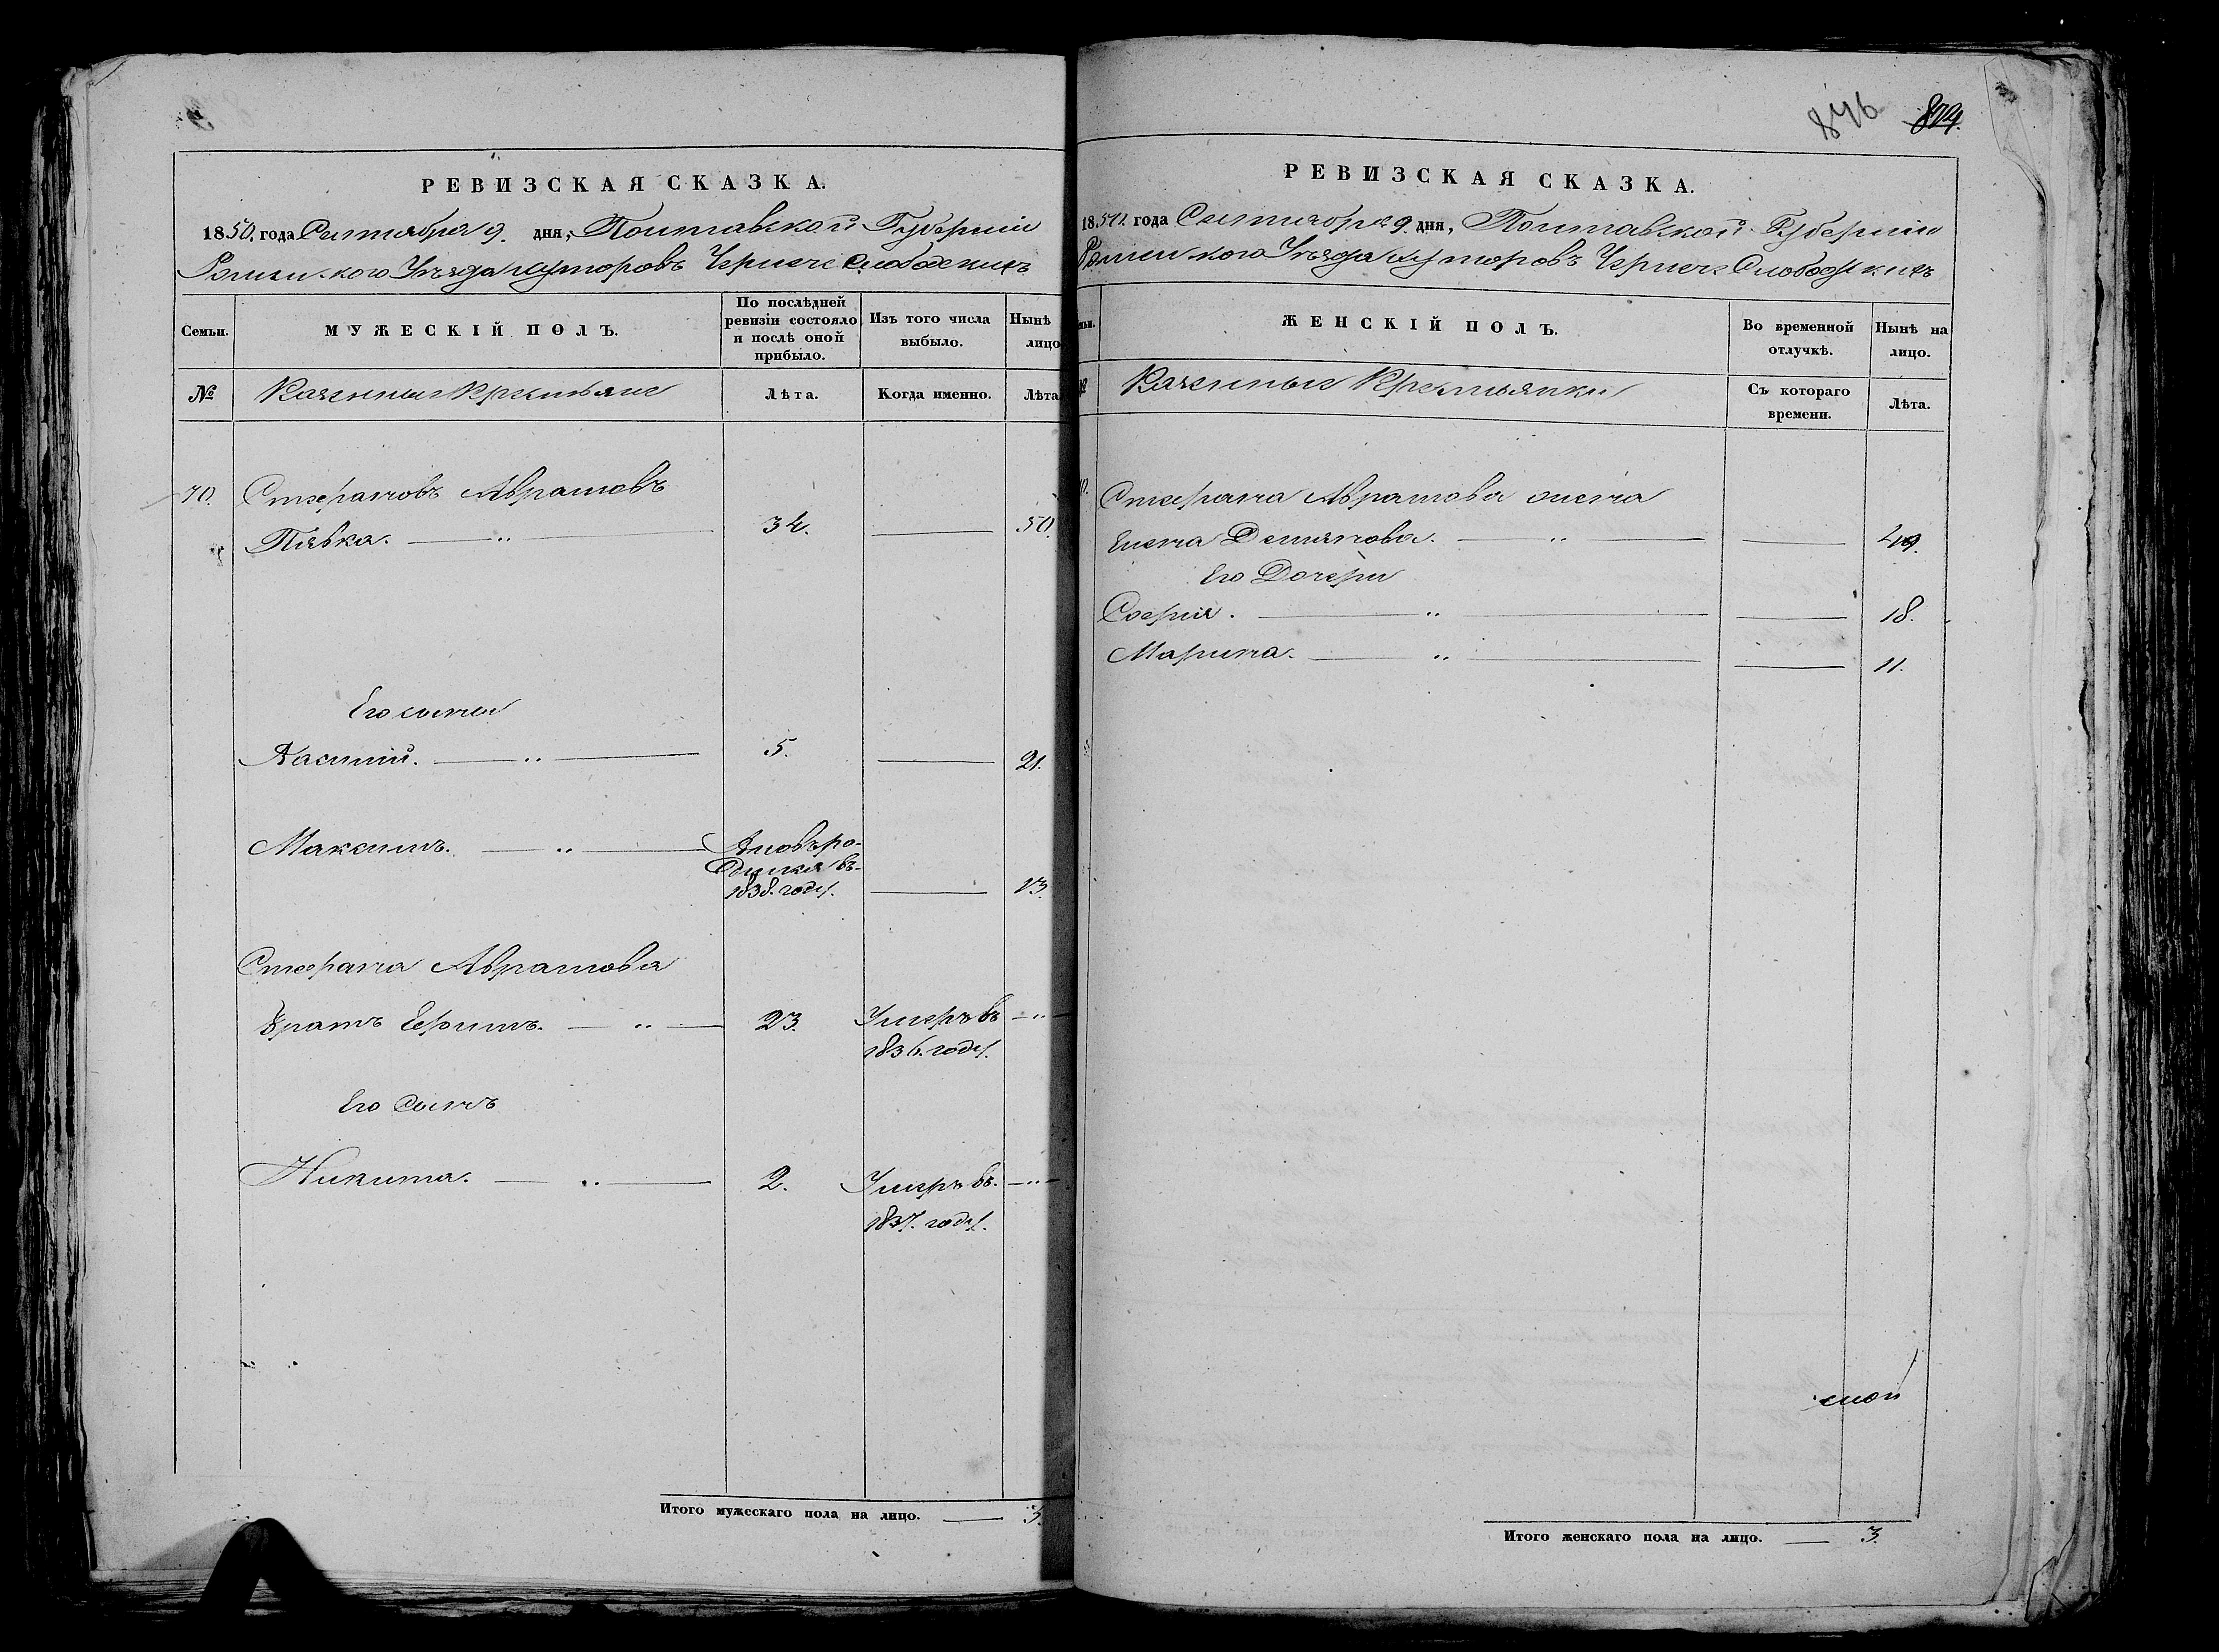 РЕВИЗСКАЯ СКАЗКА.
1850. года Сентября 9. дня, Полтавской Губерніи
Роменского Уѣзда хуторовъ Чернече Слободскихъ
Семьи.
МУЖЕСКІЙ ПОЛЪ.
По послѣдней
ревизіи состояло
и послѣ оной
прибыло.
Изъ того числа
выбыло.
Нынѣ
лицо
№
Казенные Крестьяне
Лѣта.
Когда именно.
Лѣта
70. Стефановъ Аврамовъ
Пявка. 34. 50.
Его сыны
Василій. 5. 21.
Максимъ. Вновь ро-
дился въ
1838. году. 13.
Стефана Аврамова
братъ Ефимъ. 23. Умеръ въ
1836. году.
Его Сынъ
Никита. 2. Умеръ въ
1837. году.
Итого мужескаго пола на лицо. 3.
846 824.
РЕВИЗСКАЯ СКАЗКА.
1850. года Сентября 9. дня, Полтавской Губерніи
Роменского Уѣзда хуторовъ Чернече Слободскихъ
ЖЕНСКІЙ ПОЛЪ.
Во временной
отлучкѣ.
Нынѣ на
лицо.
№
Казенные Крестьянки
Съ котораго
времени.
Лѣта.
Стефана Аврамова жена
Елена Демянова. 49.
Его Дочери
Софія. 18.
Марина. 11.
Итого женскаго пола на лицо. 3.